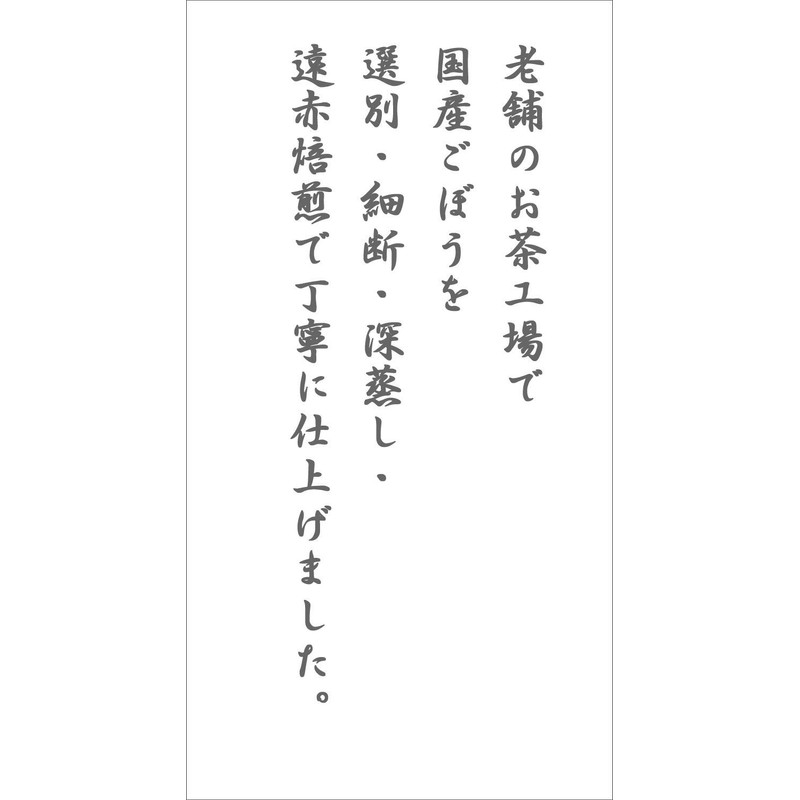 老舗のお茶工場で
国産ごぼうを
選別・細断・深蒸し・
遠赤焙煎で丁寧に仕上げました。